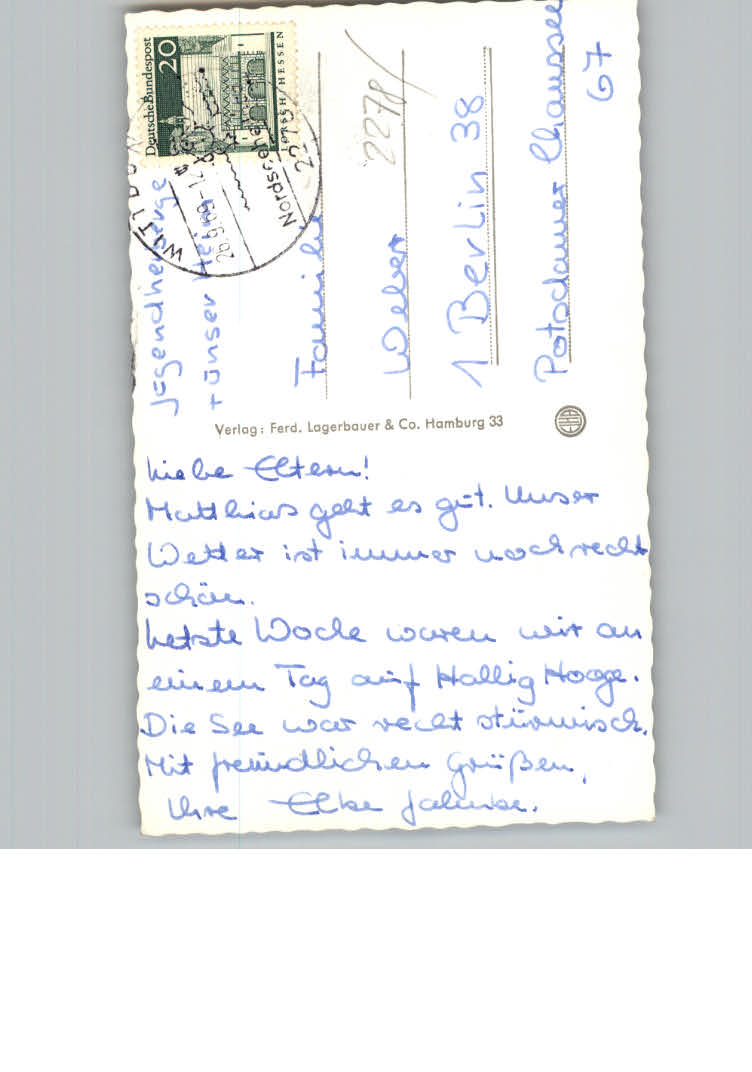 Liebe Eltern!
Matthias geht es gut. Unser
Wetter ist immer noch recht
schön.
Letzte Woche waren wir an
einem Tag auf Hallig Hooge.
Die See war recht stürmisch.
Mit freundlichen Grüßen,
Ihre Elke
Verlag: Ferd. Lagerbauer & Co. Hamburg 33
Jugendherberge
+ unser Heim
Familie
Weber
1 Berlin 38
Potsdamer Chaussee
67
2278
Deutsche Bundespost
20
LORSCH HESSEN
WITTDÜN
26.9.69
Nordseehe